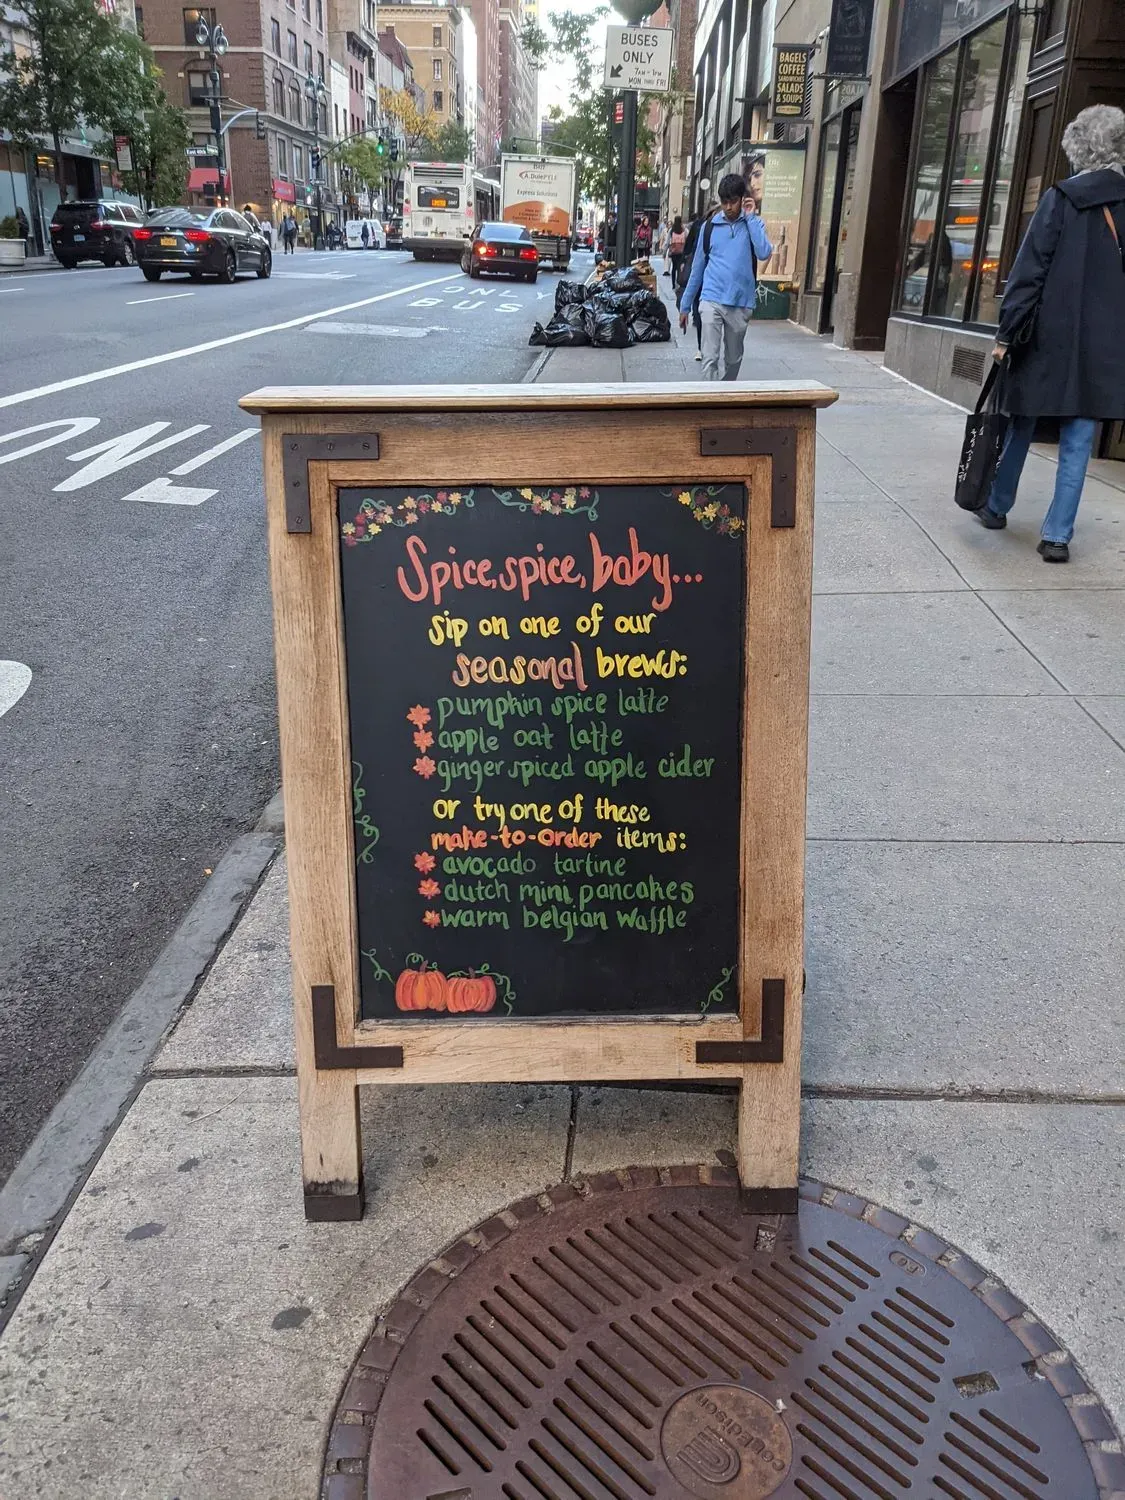 BUSES
ONLY
7AM-1PM
MON THRU FRI
BAGELS
COFFEE
SANDWICHES
SALADS
& SOUPS
A. Duie PYLE
Express Solutions
ONLY
BUS
ONL
Spice, spice, baby...
sip on one of our
seasonal brews:
pumpkin spice latte
apple oat latte
ginger spiced apple cider
or try one of these
make-to-order items:
avocado tartine
dutch mini pancakes
warm belgian waffle
CON EDISON